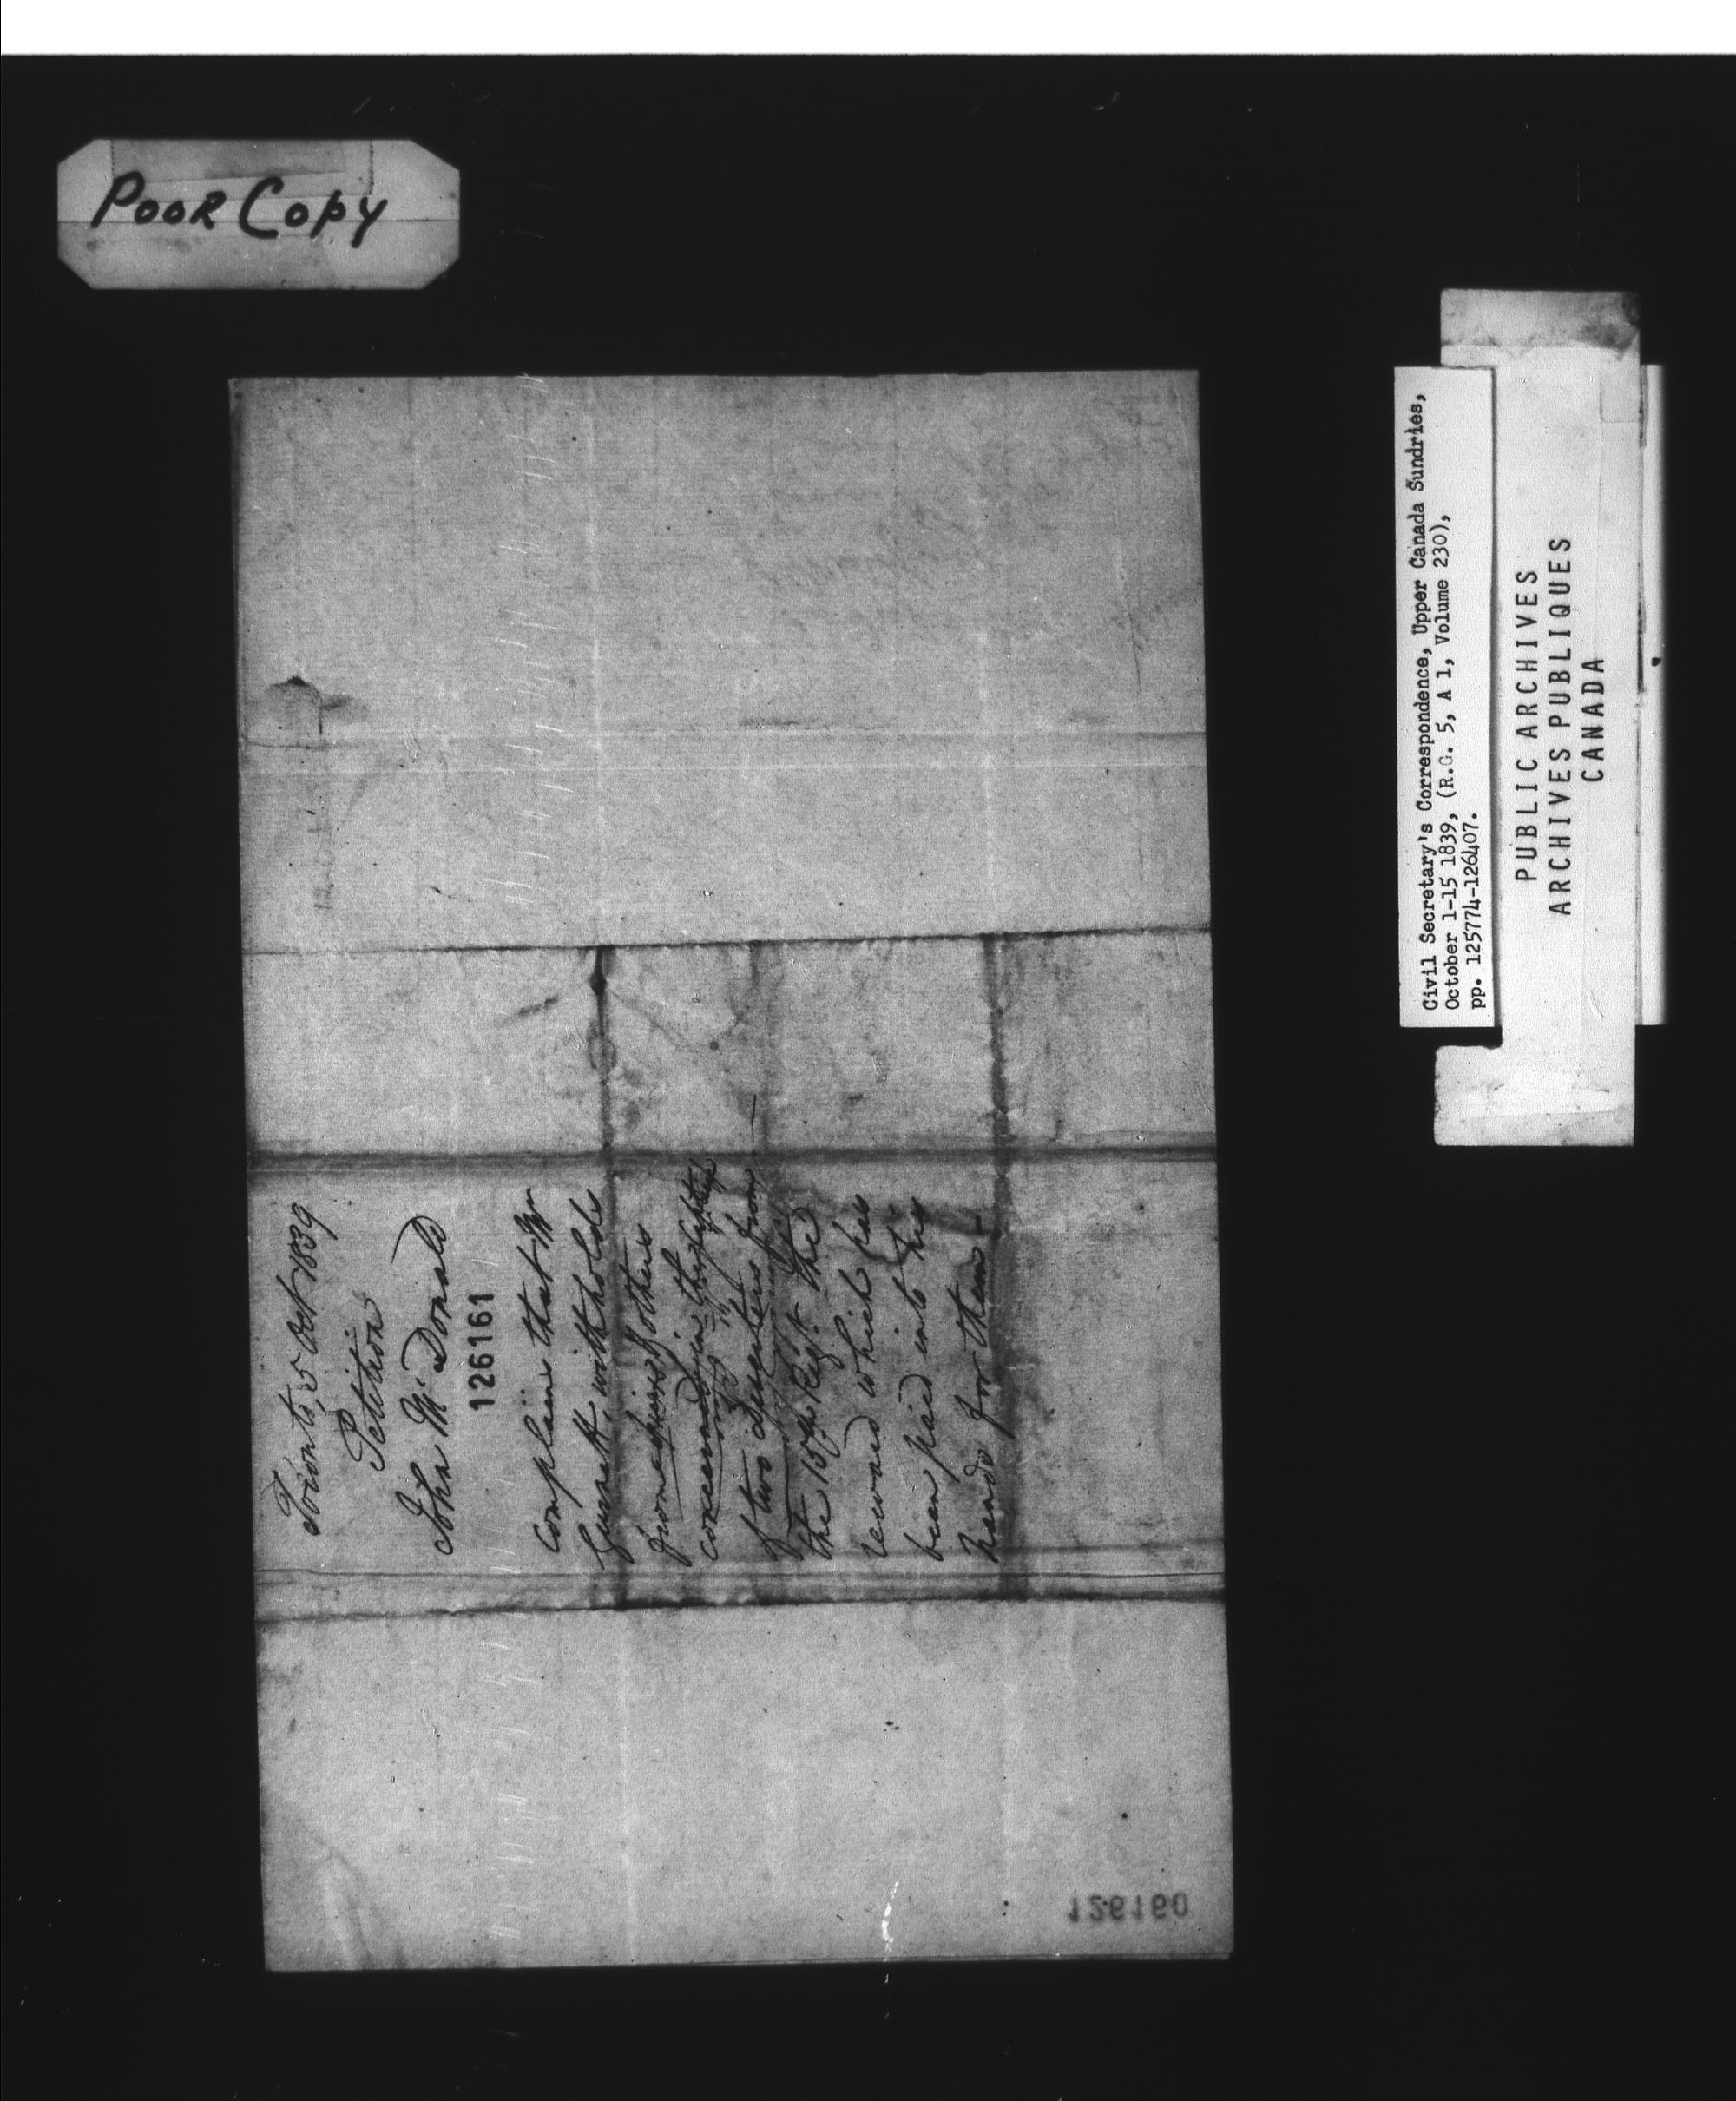 Poor Copy
Toronto, 5 Oct 1839
Petition
John McDonald
126161
Complains that Mr
Gurnett, withholds
from him & others
concerned in the capture
of two Deserters from
the 15th Regt. the
reward which has
been paid into his
hands for them
126160
Civil Secretary's Correspondence, Upper Canada Sundries,
October 1-15 1839, (R.G. 5, A 1, Volume 230),
pp. 125774-126407.
PUBLIC ARCHIVES
ARCHIVES PUBLIQUES
CANADA